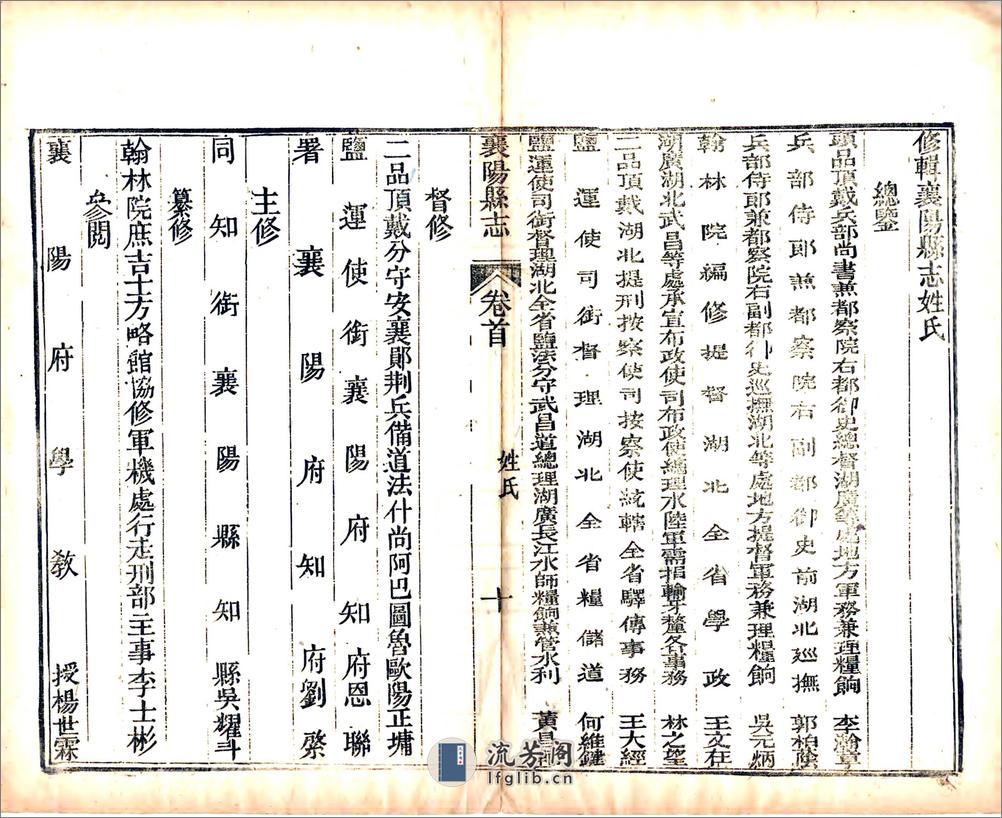 修輯襄陽縣志姓氏
總鑒
頭品頂戴兵部尚書兼都察院右都御史總督湖廣等處地方軍務兼理糧餉 李瀚章
兵部侍郎兼都察院右副都御史前湖北巡撫 郭柏蔭
兵部侍郎兼都察院右副都御史巡撫湖北等處地方提督軍務兼理糧餉 吳元炳
翰林院編修提督湖北全省學政 王文在
湖廣湖北武昌等處承宣布政使司布政使總理水陸軍需捐輸牙釐各事務 林之望
二品頂戴湖北提刑按察使司按察使統轄全省驛傳事務 王大經
鹽運使司銜督理湖北全省糧儲道 何維鍵
鹽運使司銜督理湖北全省鹽法分守武昌道總理湖廣長江水師糧餉兼管水利 黃昌
襄陽縣志 卷首 姓氏 十
督修
二品頂戴分守安襄鄖荆兵備道法什尚阿巴圖魯歐陽正墉
鹽運使銜襄陽府知府恩聯
署襄陽府知府劉棨
主修
同知銜襄陽縣知縣吳耀斗
纂修
翰林院庶吉士方略館協修軍機處行走刑部主事李士彬
參閱
襄陽府學教授楊世霖
流芳閣
lfglib.cn